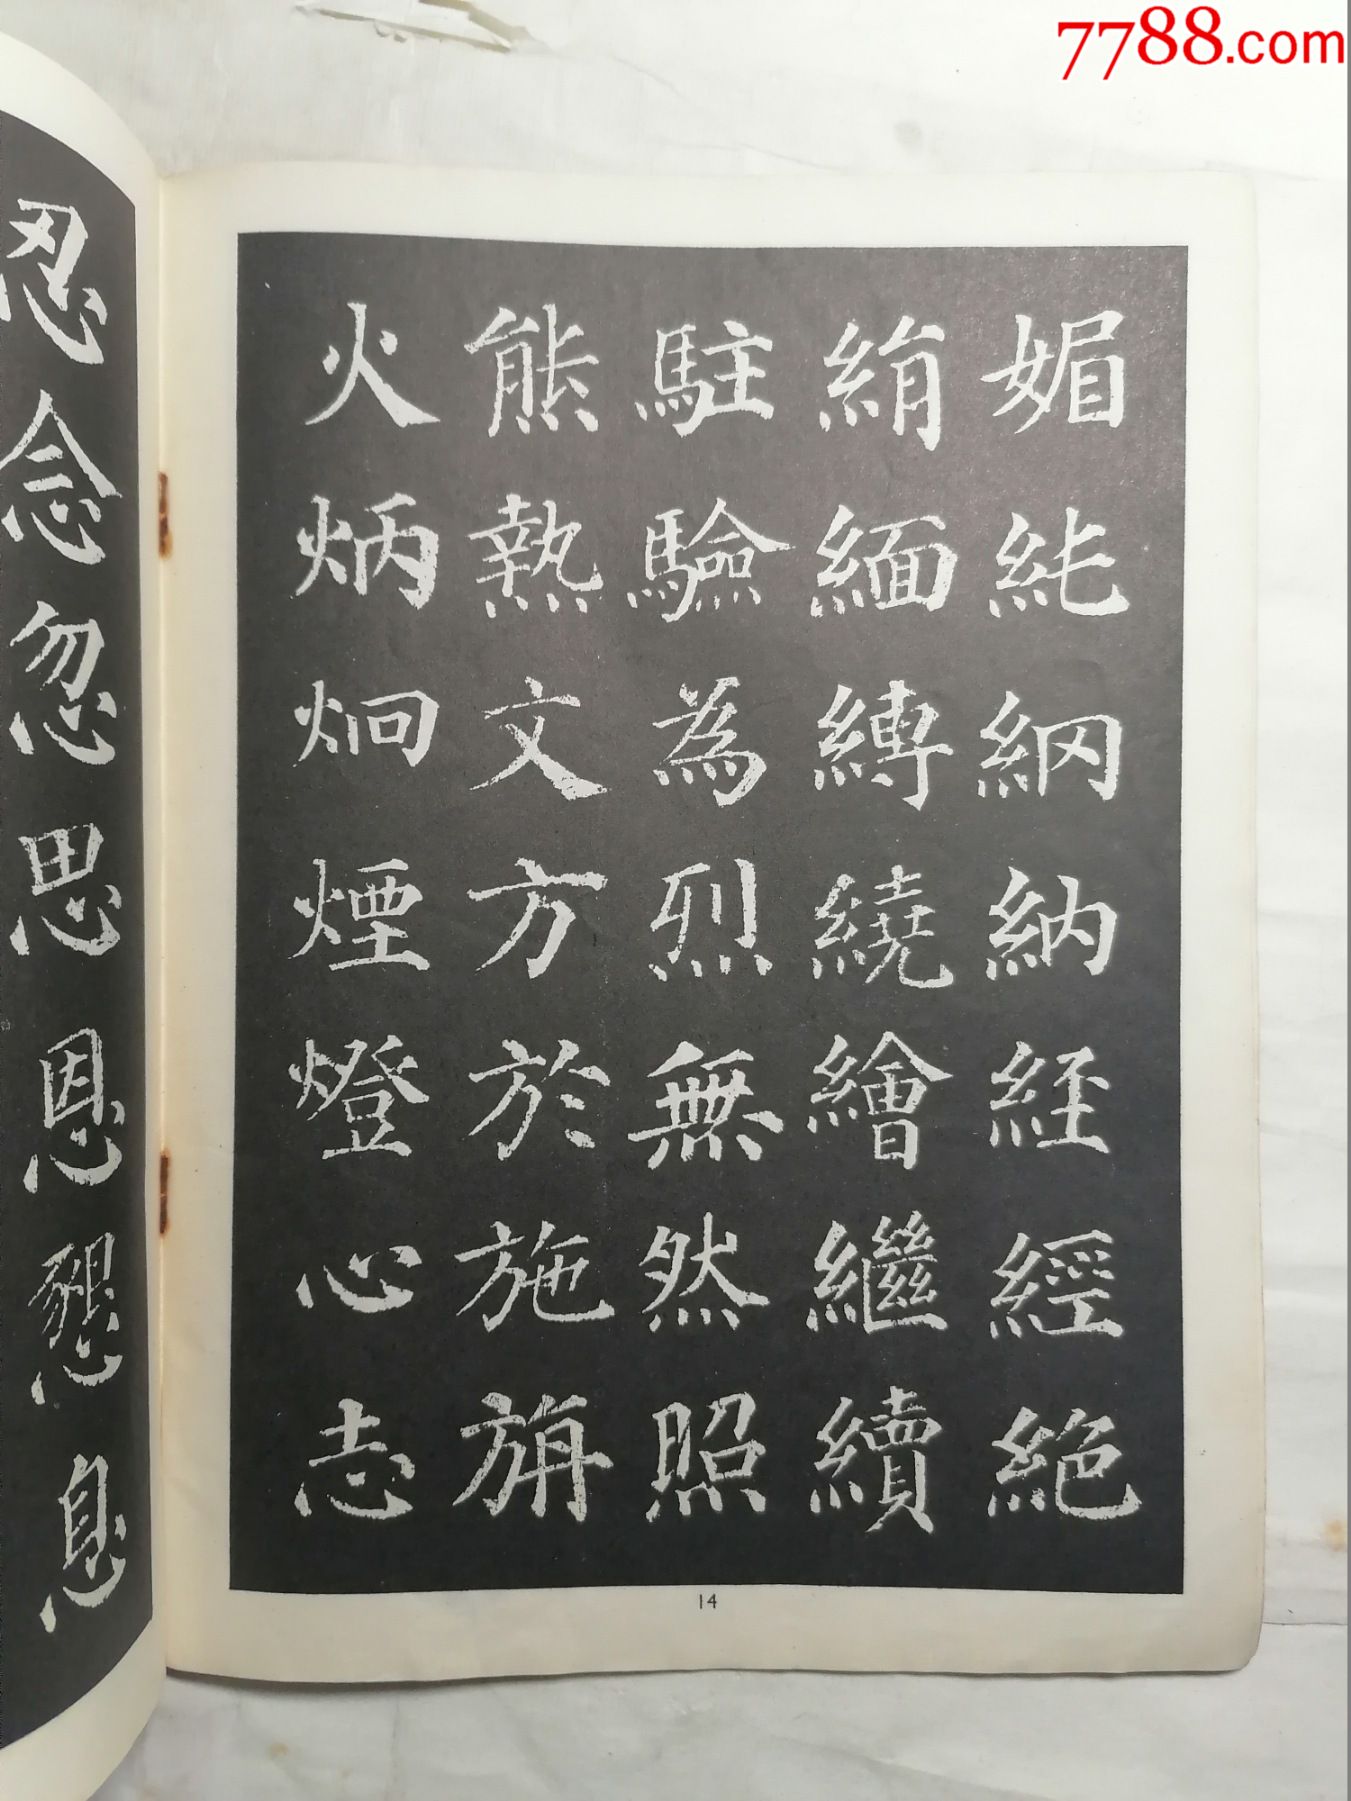 7788.com
媚紕網納經經絕
絹緬縛繞繪繼續
駐驗為烈無然照
熊熱文方於施旃
火炳炯煙燈心志
14
忍念忽思恩懇息